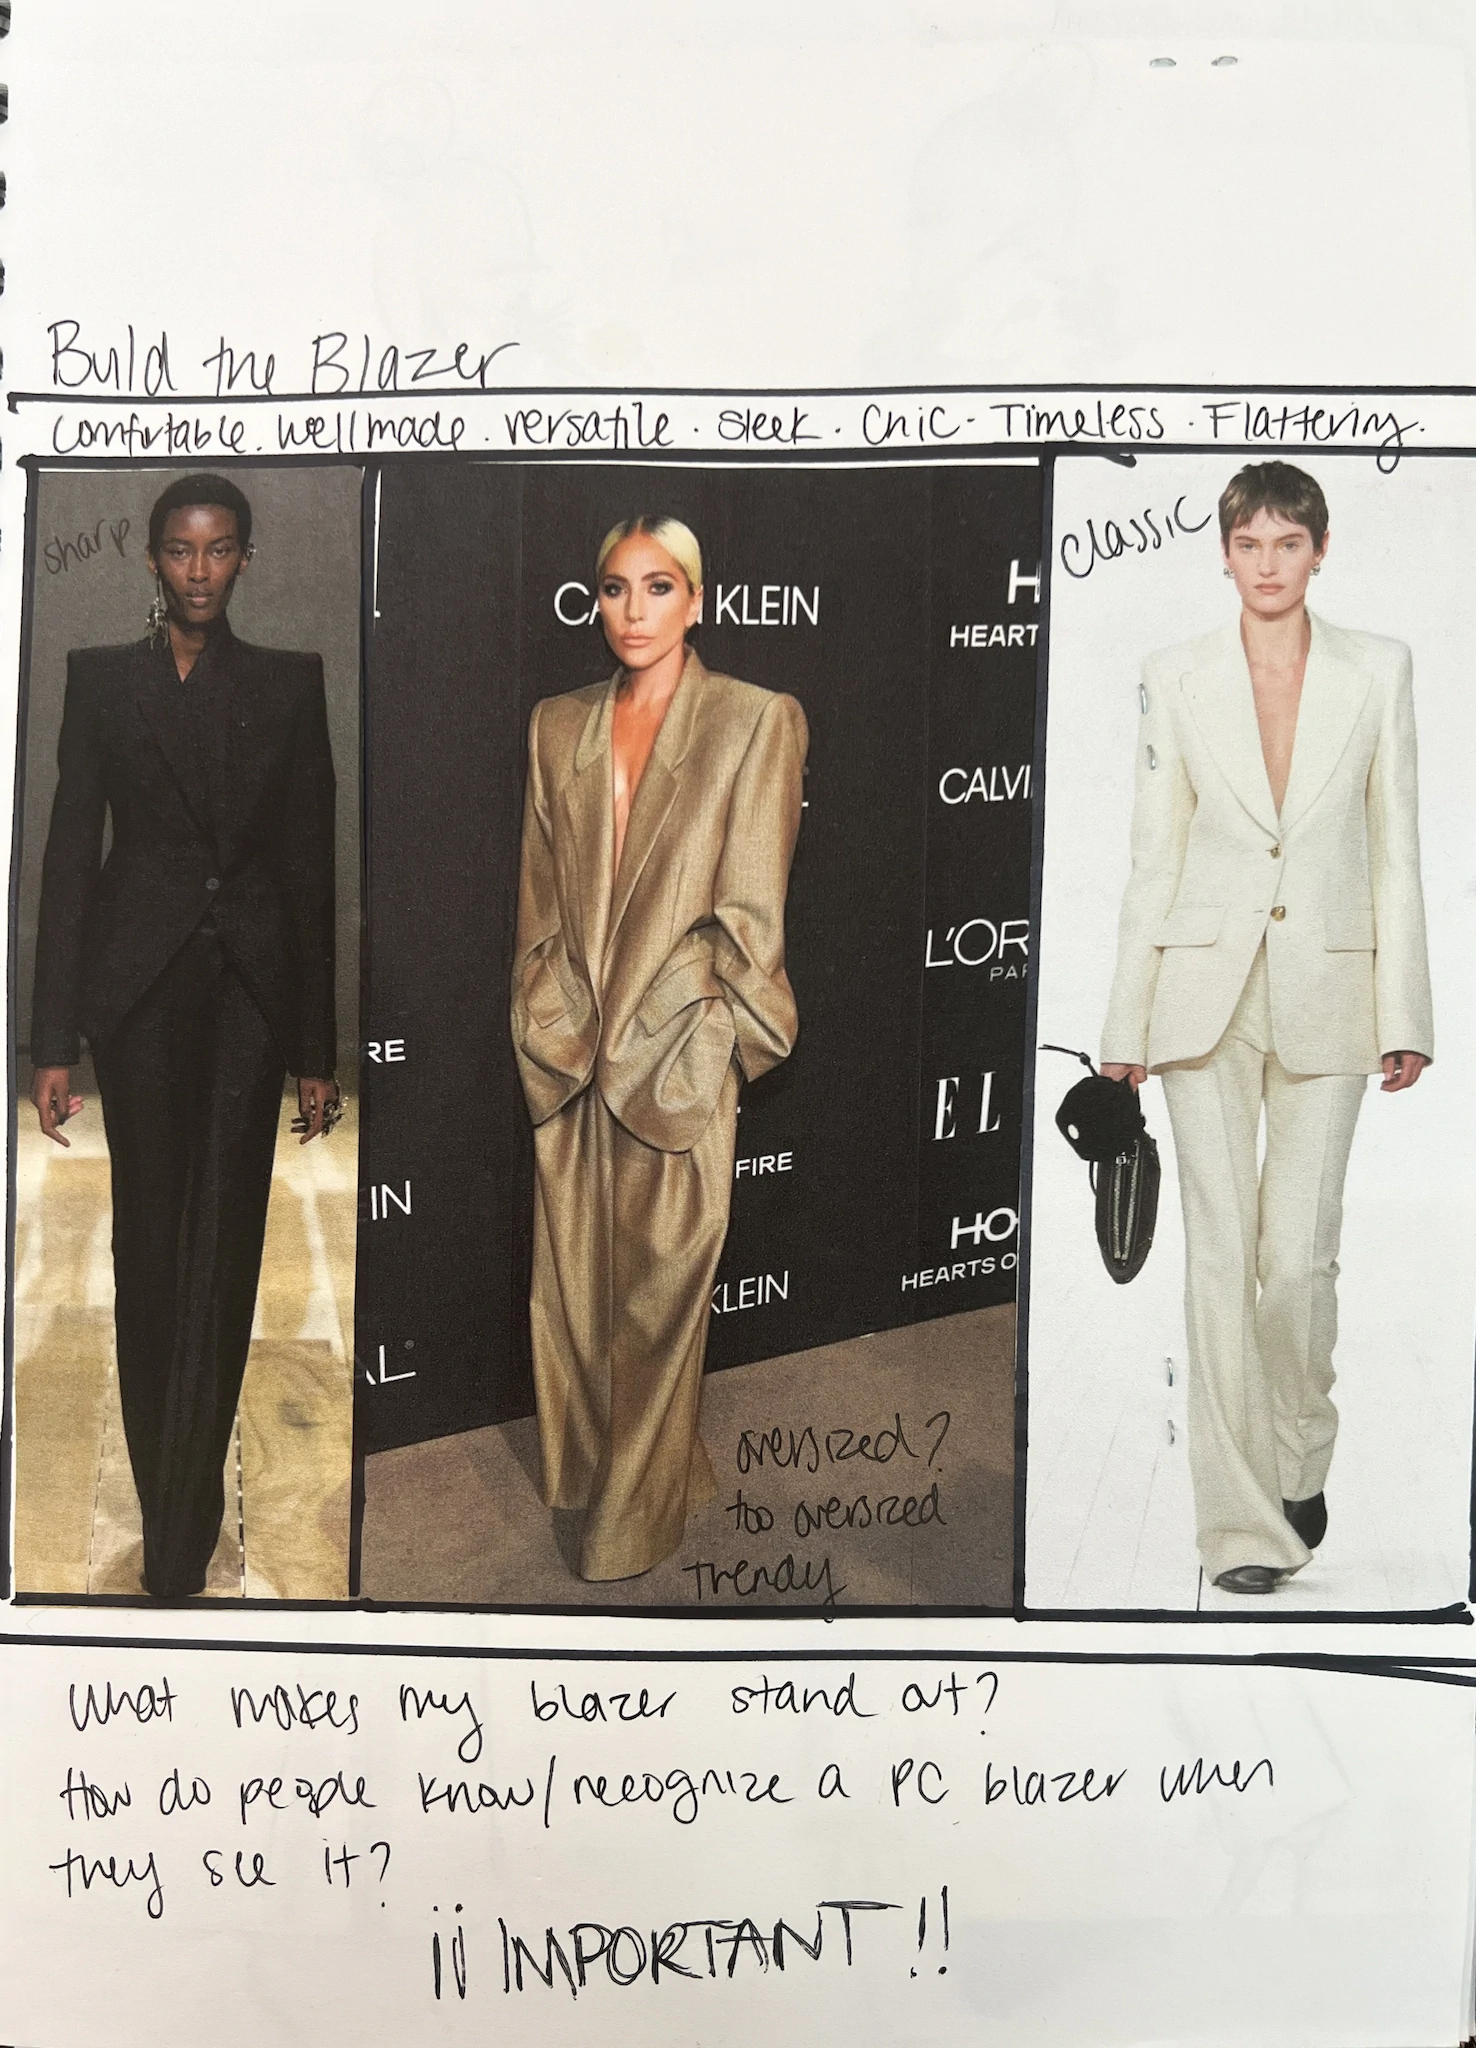 Build the Blazer
Comfortable. Well made. versatile. sleek. Chic - Timeless. Flattering.
sharp
CA N KLEIN
H
HEART
CALVI
L'OR
PAR
RE
EL
FIRE
IN
HO
HEARTS O
KLEIN
AL
oversized?
too oversized
trendy
Classic
What makes my blazer stand out?
How do people know/recognize a PC blazer when
they see it?
¡¡IMPORTANT!!